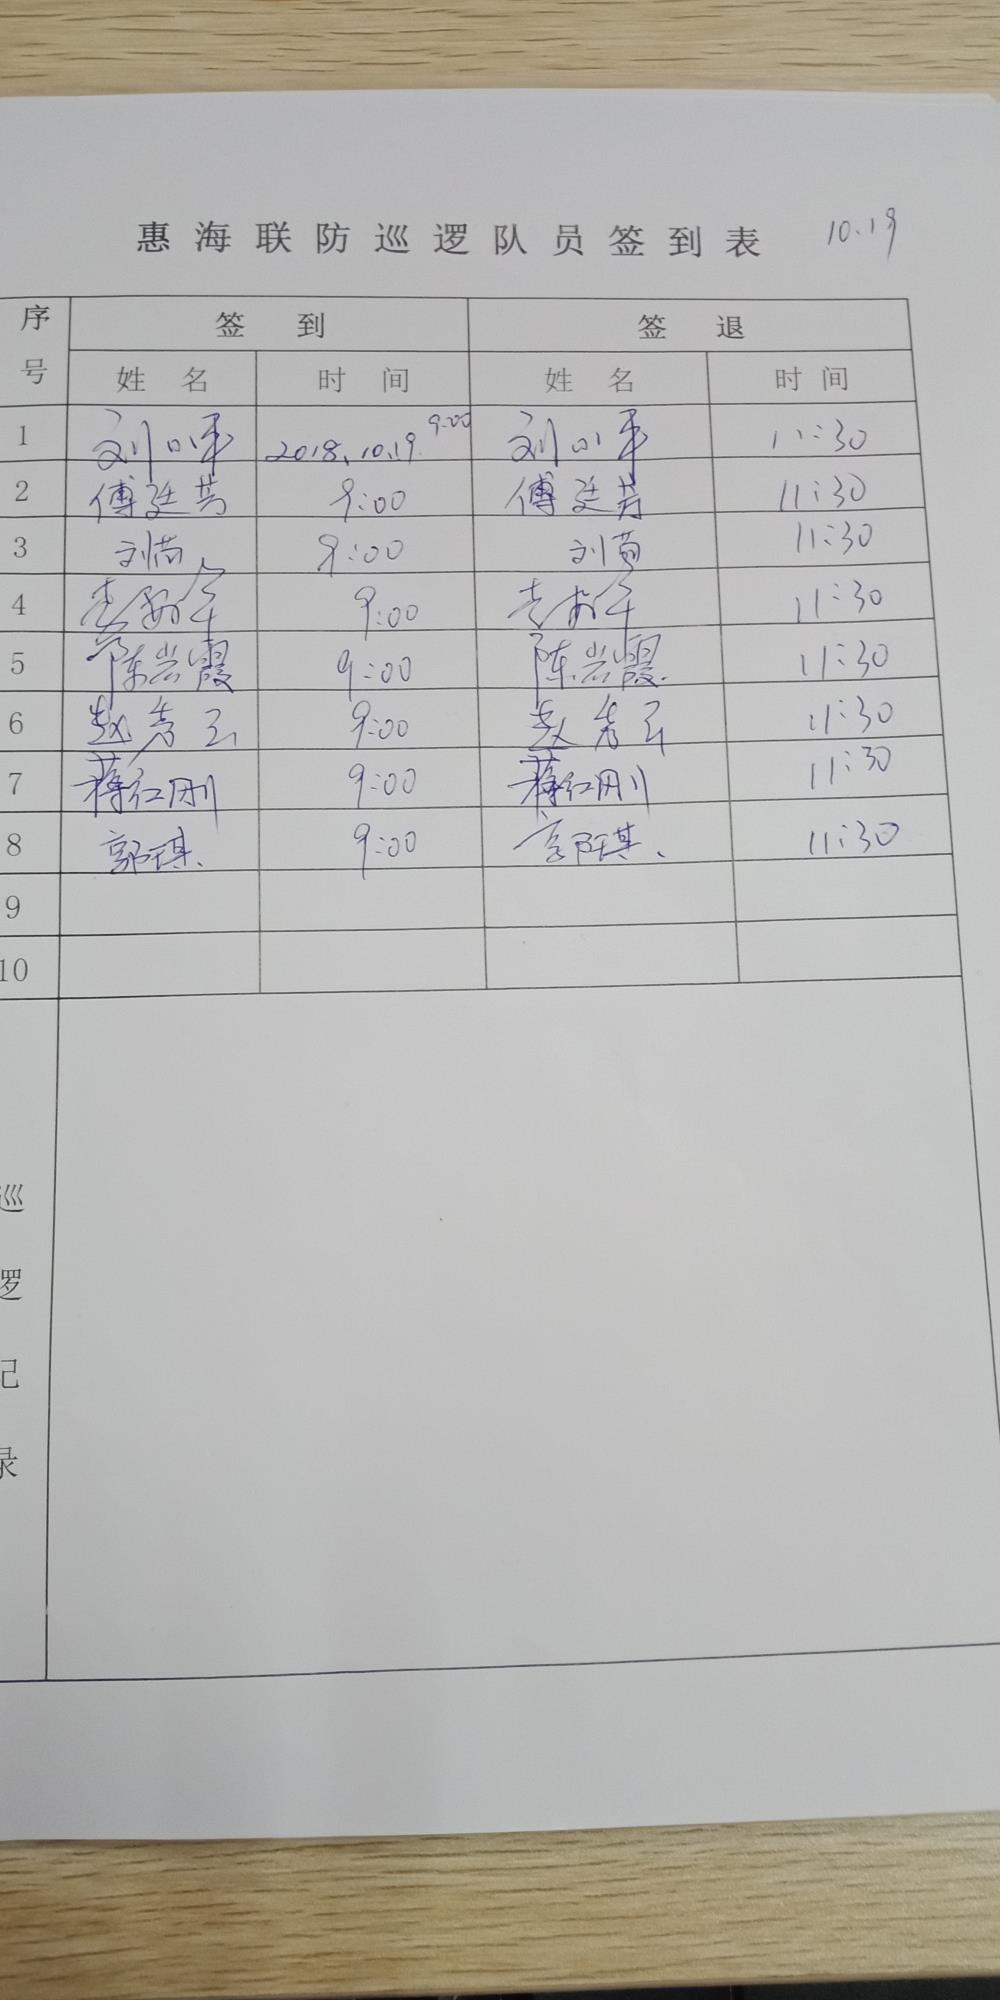 惠海联防巡逻队员签到表 10.19
序号 签到 签退
姓名 时间 姓名 时间
1 刘小平 2018.10.19 9:00 刘小平 11:30
2 傅廷芳 9:00 傅廷芳 11:30
3 刘茵 9:00 刘茵 11:30
4 9:00 11:30
5 陈兴霞 9:00 陈兴霞 11:30
6 赵秀玉 9:00 赵秀玉 11:30
7 蒋红刚 9:00 蒋红刚 11:30
8 郭琪 9:00 郭琪 11:30
9
10
巡逻记录